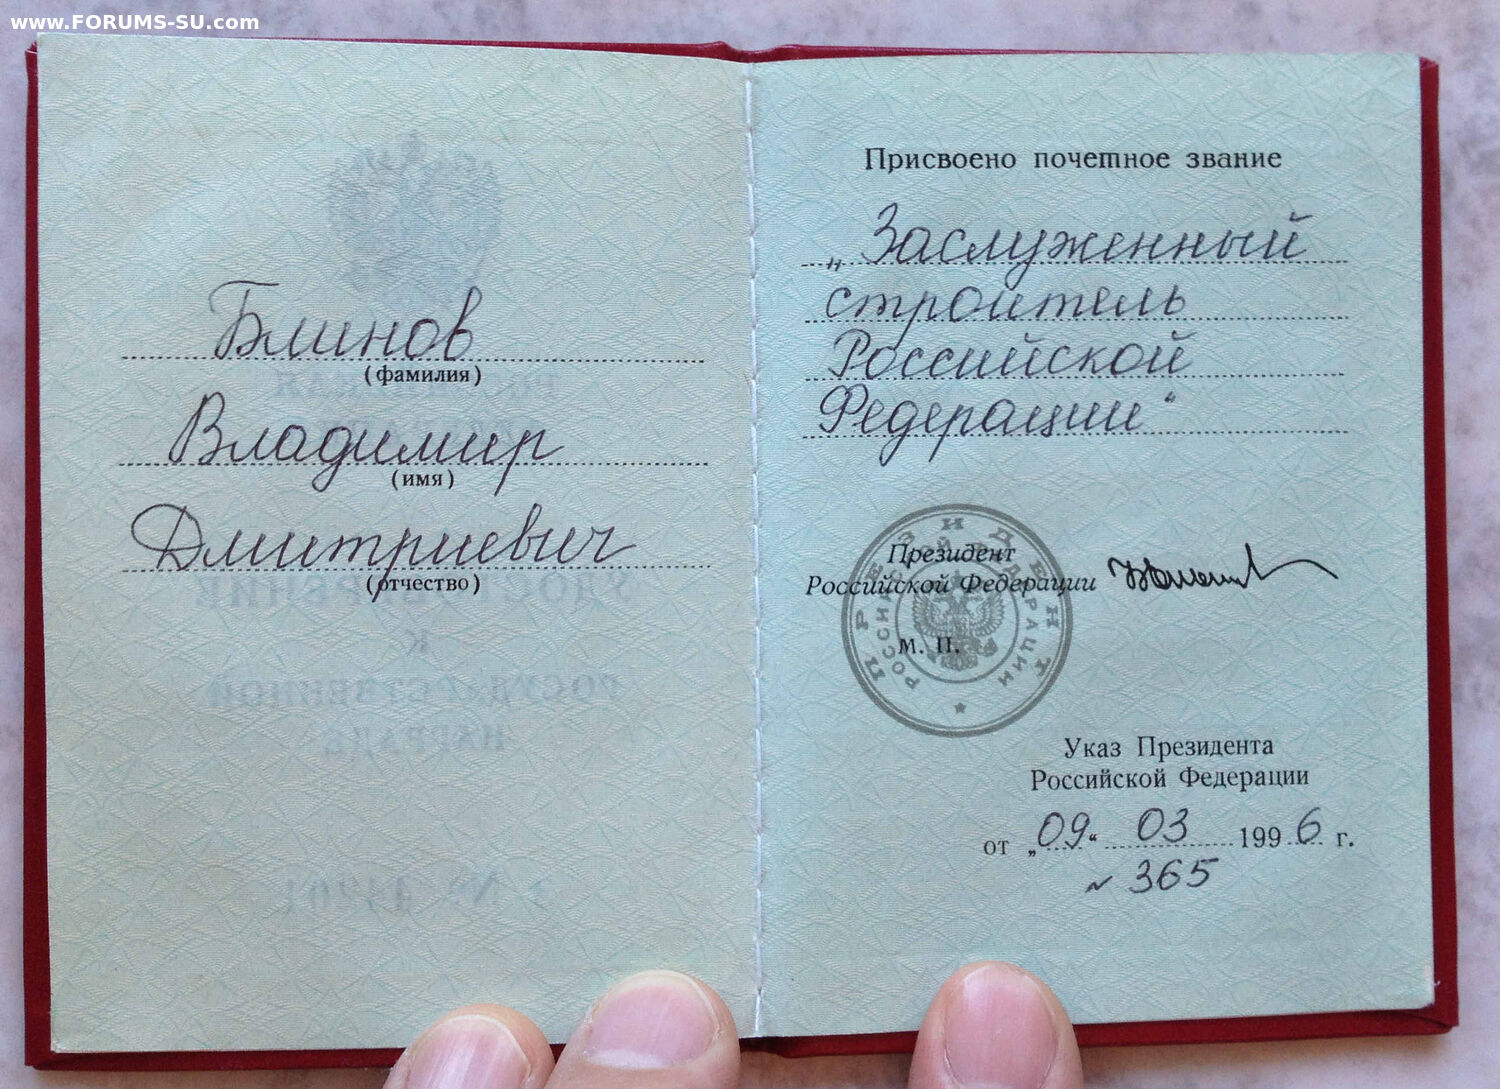 www.FORUMS-SU.com
Блинов
(фамилия)
Владимир
(имя)
Дмитриевич
(отчество)
Присвоено почетное звание
„Заслуженный
строитель
Российской
Федерации“
Президент
Российской Федерации
М. П.
ПРЕЗИДЕНТ
РОССИЙСКОЙ ФЕДЕРАЦИИ
Указ Президента
Российской Федерации
от „09“ 03 1996 г.
№ 365